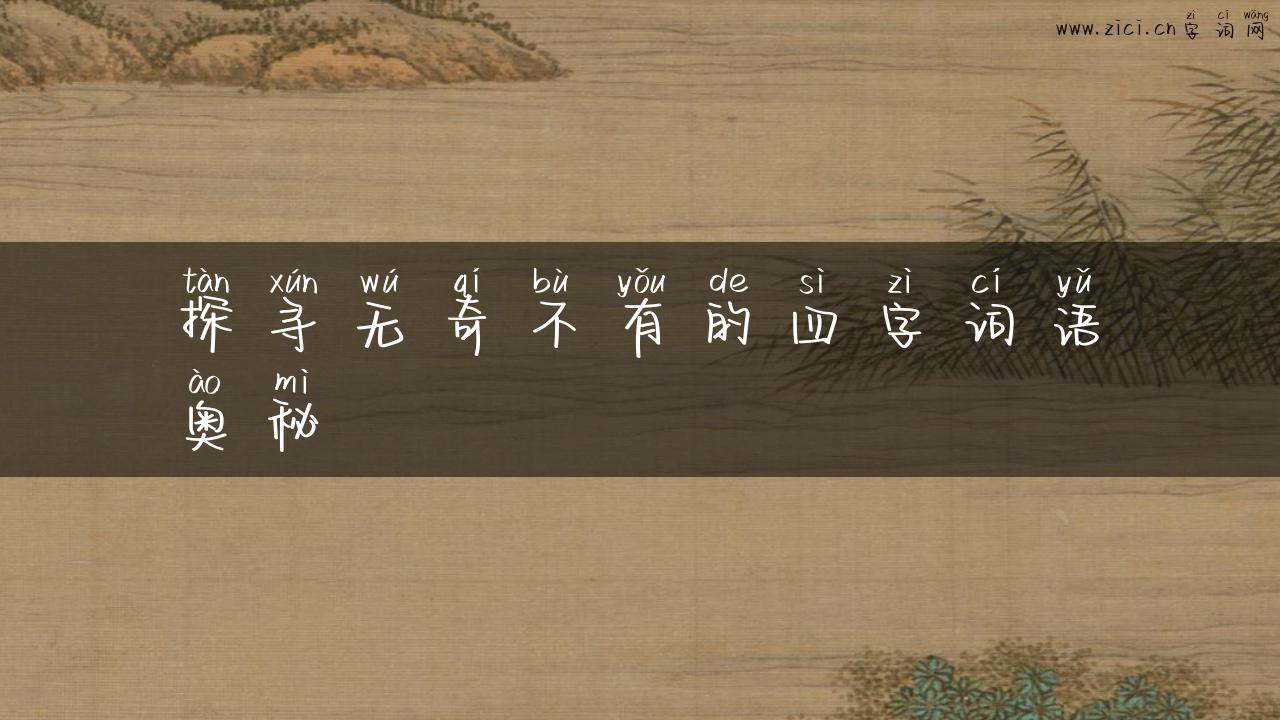 www.zici.cn zì cí wǎng
字词网
tàn xún wú qí bù yǒu de sì zì cí yǔ
探寻无奇不有的四字词语
ào mì
奥秘